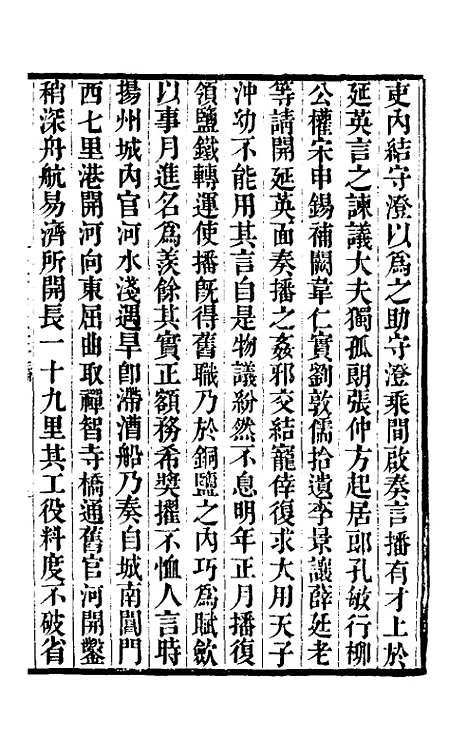 吏內結守澄以爲之助守澄乘間啟奏言播有才上於
延英言之諫議大夫獨孤朗張仲方起居郎孔敏行柳
公權宋申錫補闕韋仁實劉敦儒拾遺李景讓薛延老
等請開延英面奏播之姦邪交結寵倖復求大用天子
沖幼不能用其言自是物議紛然不息明年正月播復
領鹽鐵轉運使播旣得舊職乃於銅鹽之內巧爲賦斂
以事月進名爲羨餘其實正額務希奬擢不恤人言時
揚州城內官河水淺遇旱卽滯漕船乃奏自城南閶門
西七里港開河向東屈曲取禪智寺橋通舊官河開鑿
稍深舟航易濟所開長一十九里其工役料度不破省